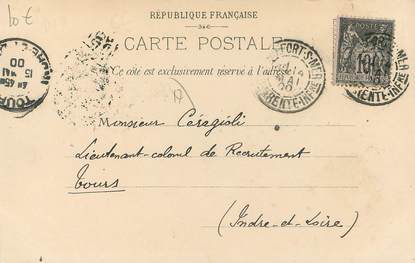 10 €
RÉPUBLIQUE FRANÇAISE
CARTE POSTALE
Ce côté est exclusivement réservé à l'adresse
FORT-S-MER
MAI
00
RENTE-INFRE
15
TOURS
15
MAI
00
Monsieur Céragioli
Lieutenant-colonel de Recrutement
Tours
(Indre-et-Loire)